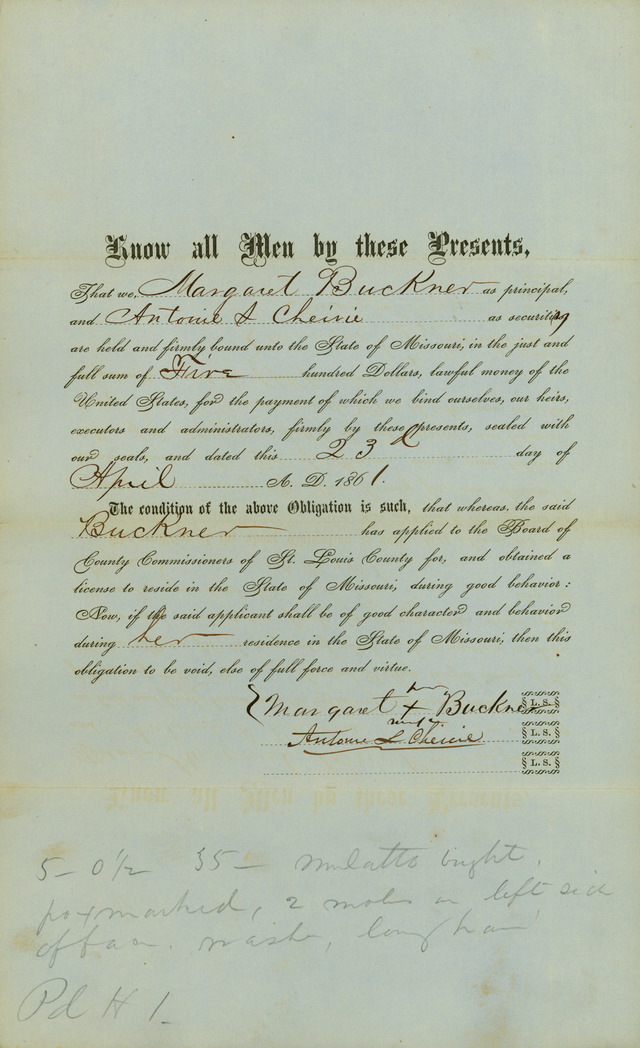 Know all Men by these Presents,
That we, Margaret Buckner as principal,
and Antoine L Cheinie as security
are held and firmly bound unto the State of Missouri, in the just and
full sum of Five hundred Dollars, lawful money of the
United States, for the payment of which we bind ourselves, our heirs,
executors and administrators, firmly by these presents, sealed with
our seals, and dated this 23d day of
April A. D. 1861.
The condition of the above Obligation is such, that whereas, the said
Buckner has applied to the Board of
County Commissioners of St. Louis County for, and obtained a
license to reside in the State of Missouri, during good behavior:
Now, if the said applicant shall be of good character and behavior
during her residence in the State of Missouri, then this
obligation to be void, else of full force and virtue.
her
Margaret + Buckner L. S.
mark
Antoine L Cheinie L. S.
L. S.
5- 0½ 35- mulatto bright.
poxmarked, 2 moles on left side
of face. long hair
Pd H 1